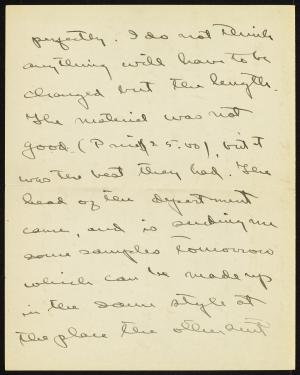 perfectly. I do not think
anything will have to be
changed but the length.
The material was not
good (P 25.00), but it
was the best they had. The
head of the department
came, and is sending me
some samples tomorrow
which can be made up
in the same style at
the place the other